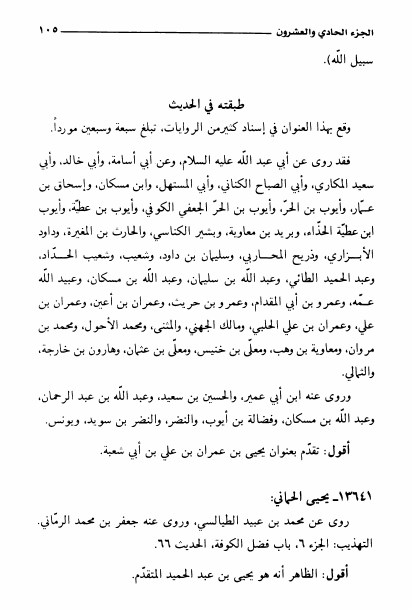 الجزء الحادي والعشرون ١٠٥
سبيل الله).
طبقته في الحديث
وقع بهذا العنوان في إسناد كثير من الروايات، تبلغ سبعة وسبعين مورداً.
فقد روى عن أبي عبد الله عليه السلام، وعن أبي أسامة، وأبي خالد، وأبي
سعيد المكاري، وأبي الصباح الكناني، وأبي المستهل، وابن مسكان، وإسحاق بن
عمّار، وأيوب بن الحرّ، وأيوب بن الحرّ الجعفي الكوفي، وأيوب بن عطيّة، وأيوب
ابن عطيّة الحذّاء، وبريد بن معاوية، وبشير الكناسي، والحارث بن المغيرة، وداود
الأبـزاري، وذريح المحـاربي، وسليمان بن داود، وشعيب، وشعيب الحـدّاد،
وعبد الحميد الطائي، وعبد الله بن سليمان، وعبد الله بن مسكان، وعبيد الله
عمّه، وعمرو بن أبي المقدام، وعمرو بن حريث، وعمران بن أعين، وعمران بن
علي، وعمران بن علي الحلبي، ومالك الجهني، والمثنى، ومحمد الأحول، ومحمد بن
مروان، ومعاوية بن وهب، ومعلّى بن خنيس، ومعلّى بن عثمان، وهارون بن خارجة،
والثمالي.
وروى عنه ابن أبي عمير، والحسين بن سعيد، وعبد الله بن عبد الرحمان،
وعبد الله بن مسكان، وفضالة بن أيوب، والنضر، والنضر بن سويد، ويونس.
أقول: تقدّم بعنوان يحيى بن عمران بن علي بن أبي شعبة.
١٣٦٤١ـ يحيى الحماني:
روى عن محمد بن عبيد الطيالسي، وروى عنه جعفر بن محمد الرمّاني.
التهذيب: الجزء ٦، باب فضل الكوفة، الحديث ٦٦.
أقول: الظاهر أنه هو يحيى بن عبد الحميد المتقدّم.